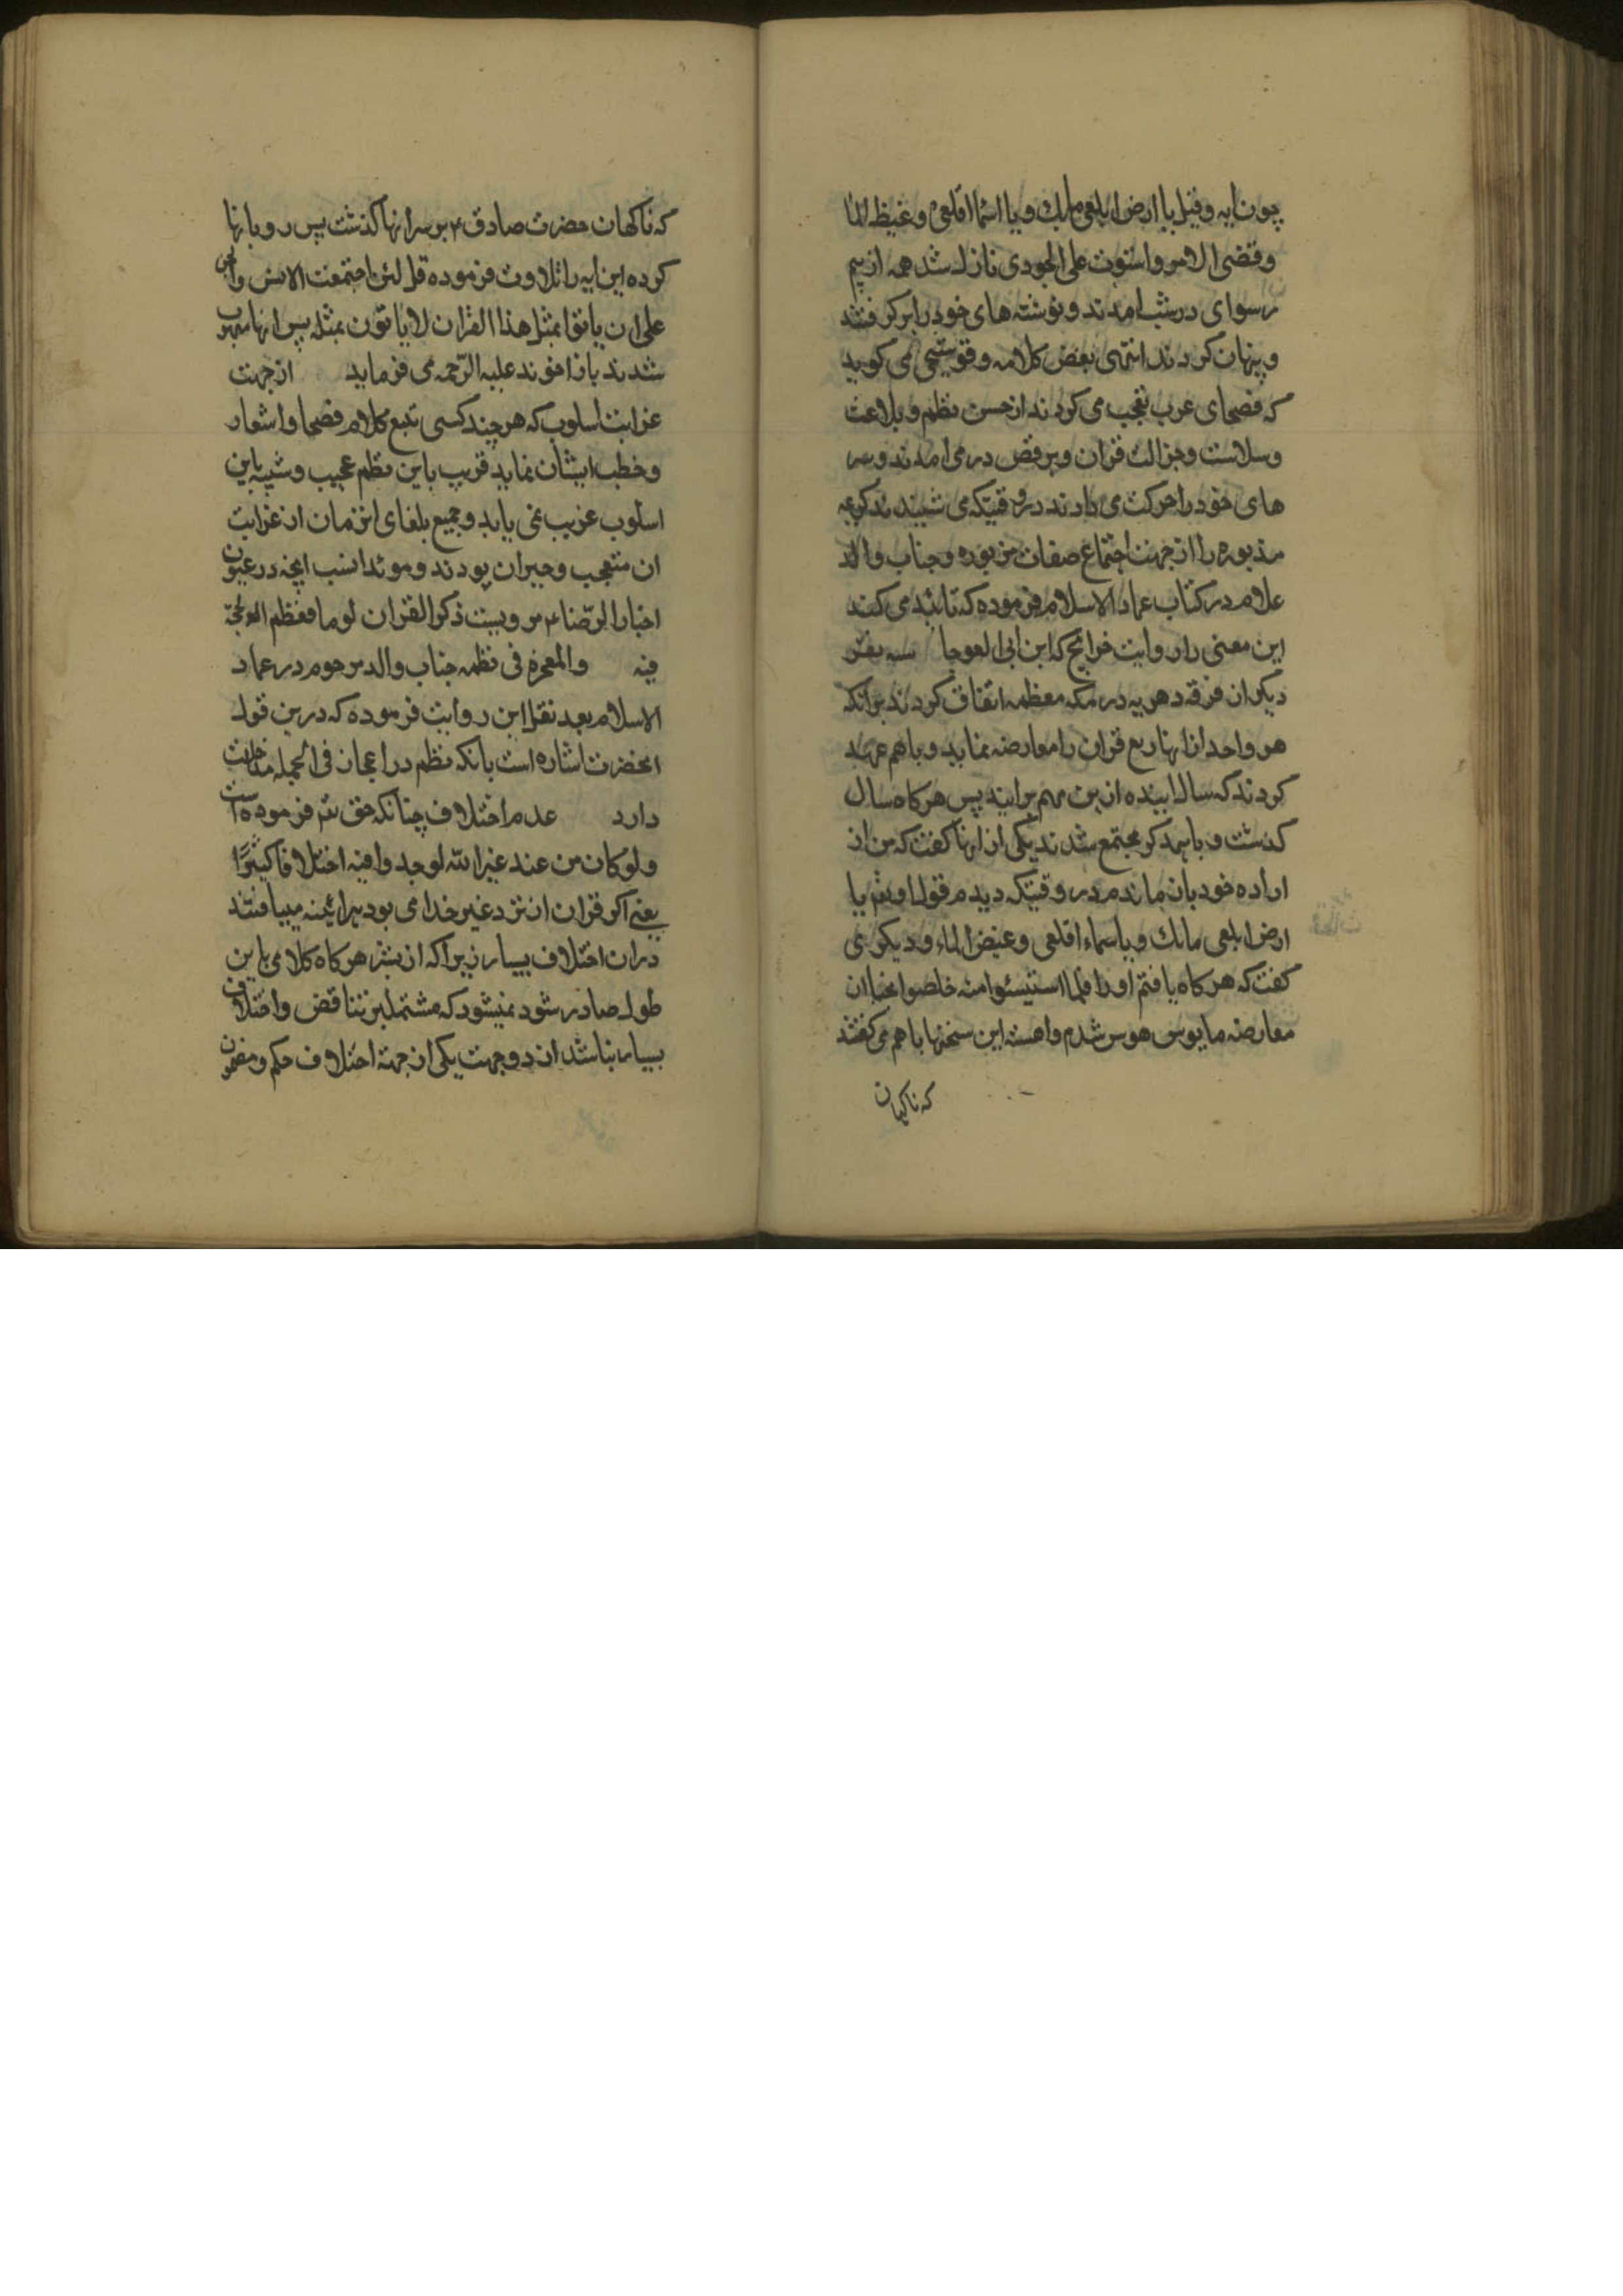 چون ایه و قیل یا ارض ابلعی مایك و یا اسما اقلعی و غیظ الما
و قضی الامر و استوت علی الجودی نازل شد همه از بیم
رسوای در شب امدند و نوشته های خود را بر گرفتند
و پنهان کردند انتهی بعض کلامه و قوشجی می کوید
که فصحای عرب تعجب می کردند از حسن نظم و بلاغت
و سلاست و جزالت قران و برقص در می امدند و سر
های خود را حرکت می دادند در وقتیکه می شنیدند کریمه
مذبوره را از جهت اجتماع صفات مزبوره و جناب والد
علام در کتاب عماد الاسلام فرموده که تائید می کند
این معنی را روایت خرائج که ابن ابی العوجا سه نفر
دیکر از فرقه دهریه در مکه معظمه اتفاق کردند بر انکه
هر واحد از انها ربع قران را معارضه نماید و باهم عهد
کردند که سال اینده ازین مهم بر ایند پس هر کاه سال
کذشت و باهمدکر مجتمع شدند یکی از انها کفت که من از
اراده خود بازماندم در وقتیکه دیدم قول او تعم یا
ارض ابلعی مائك و یا سماء اقلعی و غیض الماء و دیکری
کفت که هر کاه یافتم او را فلما استیئسوا منه خلصوا نجیا از
معارضه مایوس شدم و اهسته این سخنها باهم می کفتند
که ناکهان
که ناکهان حضرت صادق ع بر سر انها کذشت پس رو بانها
کرده این ایه را تلاوت فرموده قل لئن اجتمعت الانس والجن
علی ان یاتوا بمثل هذا القران لا یاتون بمثله پس انها مبهوت
شدند باز اخوند علیه الرّحمه می فرماید از جهت
غرابت اسلوب که هر چند کسی تتبع کلام فصحا و اشعار
و خطب ایشان نماید قریب باین نظم عجیب و شبیه باین
اسلوب غریب نمی یابد و جمیع بلغای انزمان از غرابت
ان متعجب و حیران بودند و موئد انست انچه در عیون
اخبار الرّضا ع مرویست ذکر القران لوما فعظم الحجّة
فیه والمعجزه فی نظمه جناب والد مرحوم در عماد
الاسلام بعد نقل این روایت فرموده که درین قول
انحضرت اشاره است بانکه نظم در اعجاز فی الجمله مداخلت
دارد عدم اختلاف چنانکه حق تعم فرموده است
ولو کان من عند غیر الله لوجدوا فیه اختلافا کثیرًا
یعنی اکر قران از نزد غیر خدا می بود هرائینه مییافتند
دران اختلاف بسیار زیرا که از بشر هر کاه کلامی باین
طول صادر شود نمیشود که مشتمل بر تناقض و اختلاف
بسیار نباشد از دو جهت یکی از جهة اختلاف حکم و مضمون